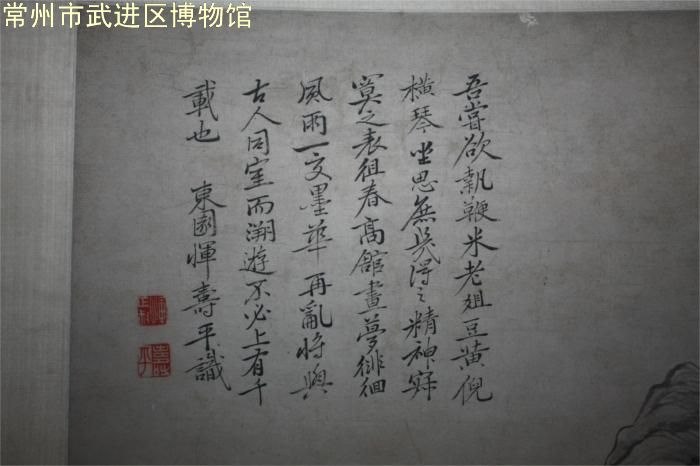 常州市武进区博物馆
吾嘗欲執鞭米老俎豆黄倪
橫琴坐思無幾得之精神寂
寞之表徂春高館晝夢徘徊
風雨一交墨華再亂將與
古人同室而溯遊不必上有千
載也 東園惲壽平識